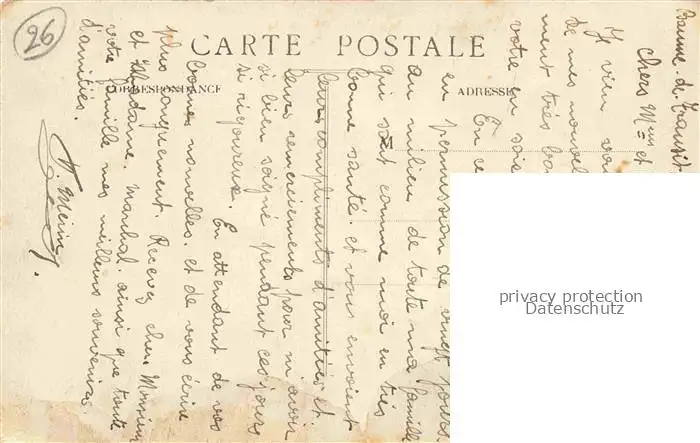 26
CARTE POSTALE
CORRESPONDANCE
ADRESSE
Baume-de-Transit
chers Mme et
Je vien vou
de mes nouvel
ment très bon
votre en soi
En ce
en permission de vingt jours
au milieu de toute ma famille
qui sont comme moi en très
bonne santé. et vous envoient
leurs compliments d'amitiés et
leurs remerciements pour m'avoir
si bien soigné pendant ces jours
si rigoureux. En attendant de vos
bonnes nouvelles. et de vous écrire
plus longuement. Recevez cher Monsieur
et Madame. Marchal. ainsi que toute
votre famille mes meilleurs souvenirs
d'amitiés.
privacy protection
Datenschutz